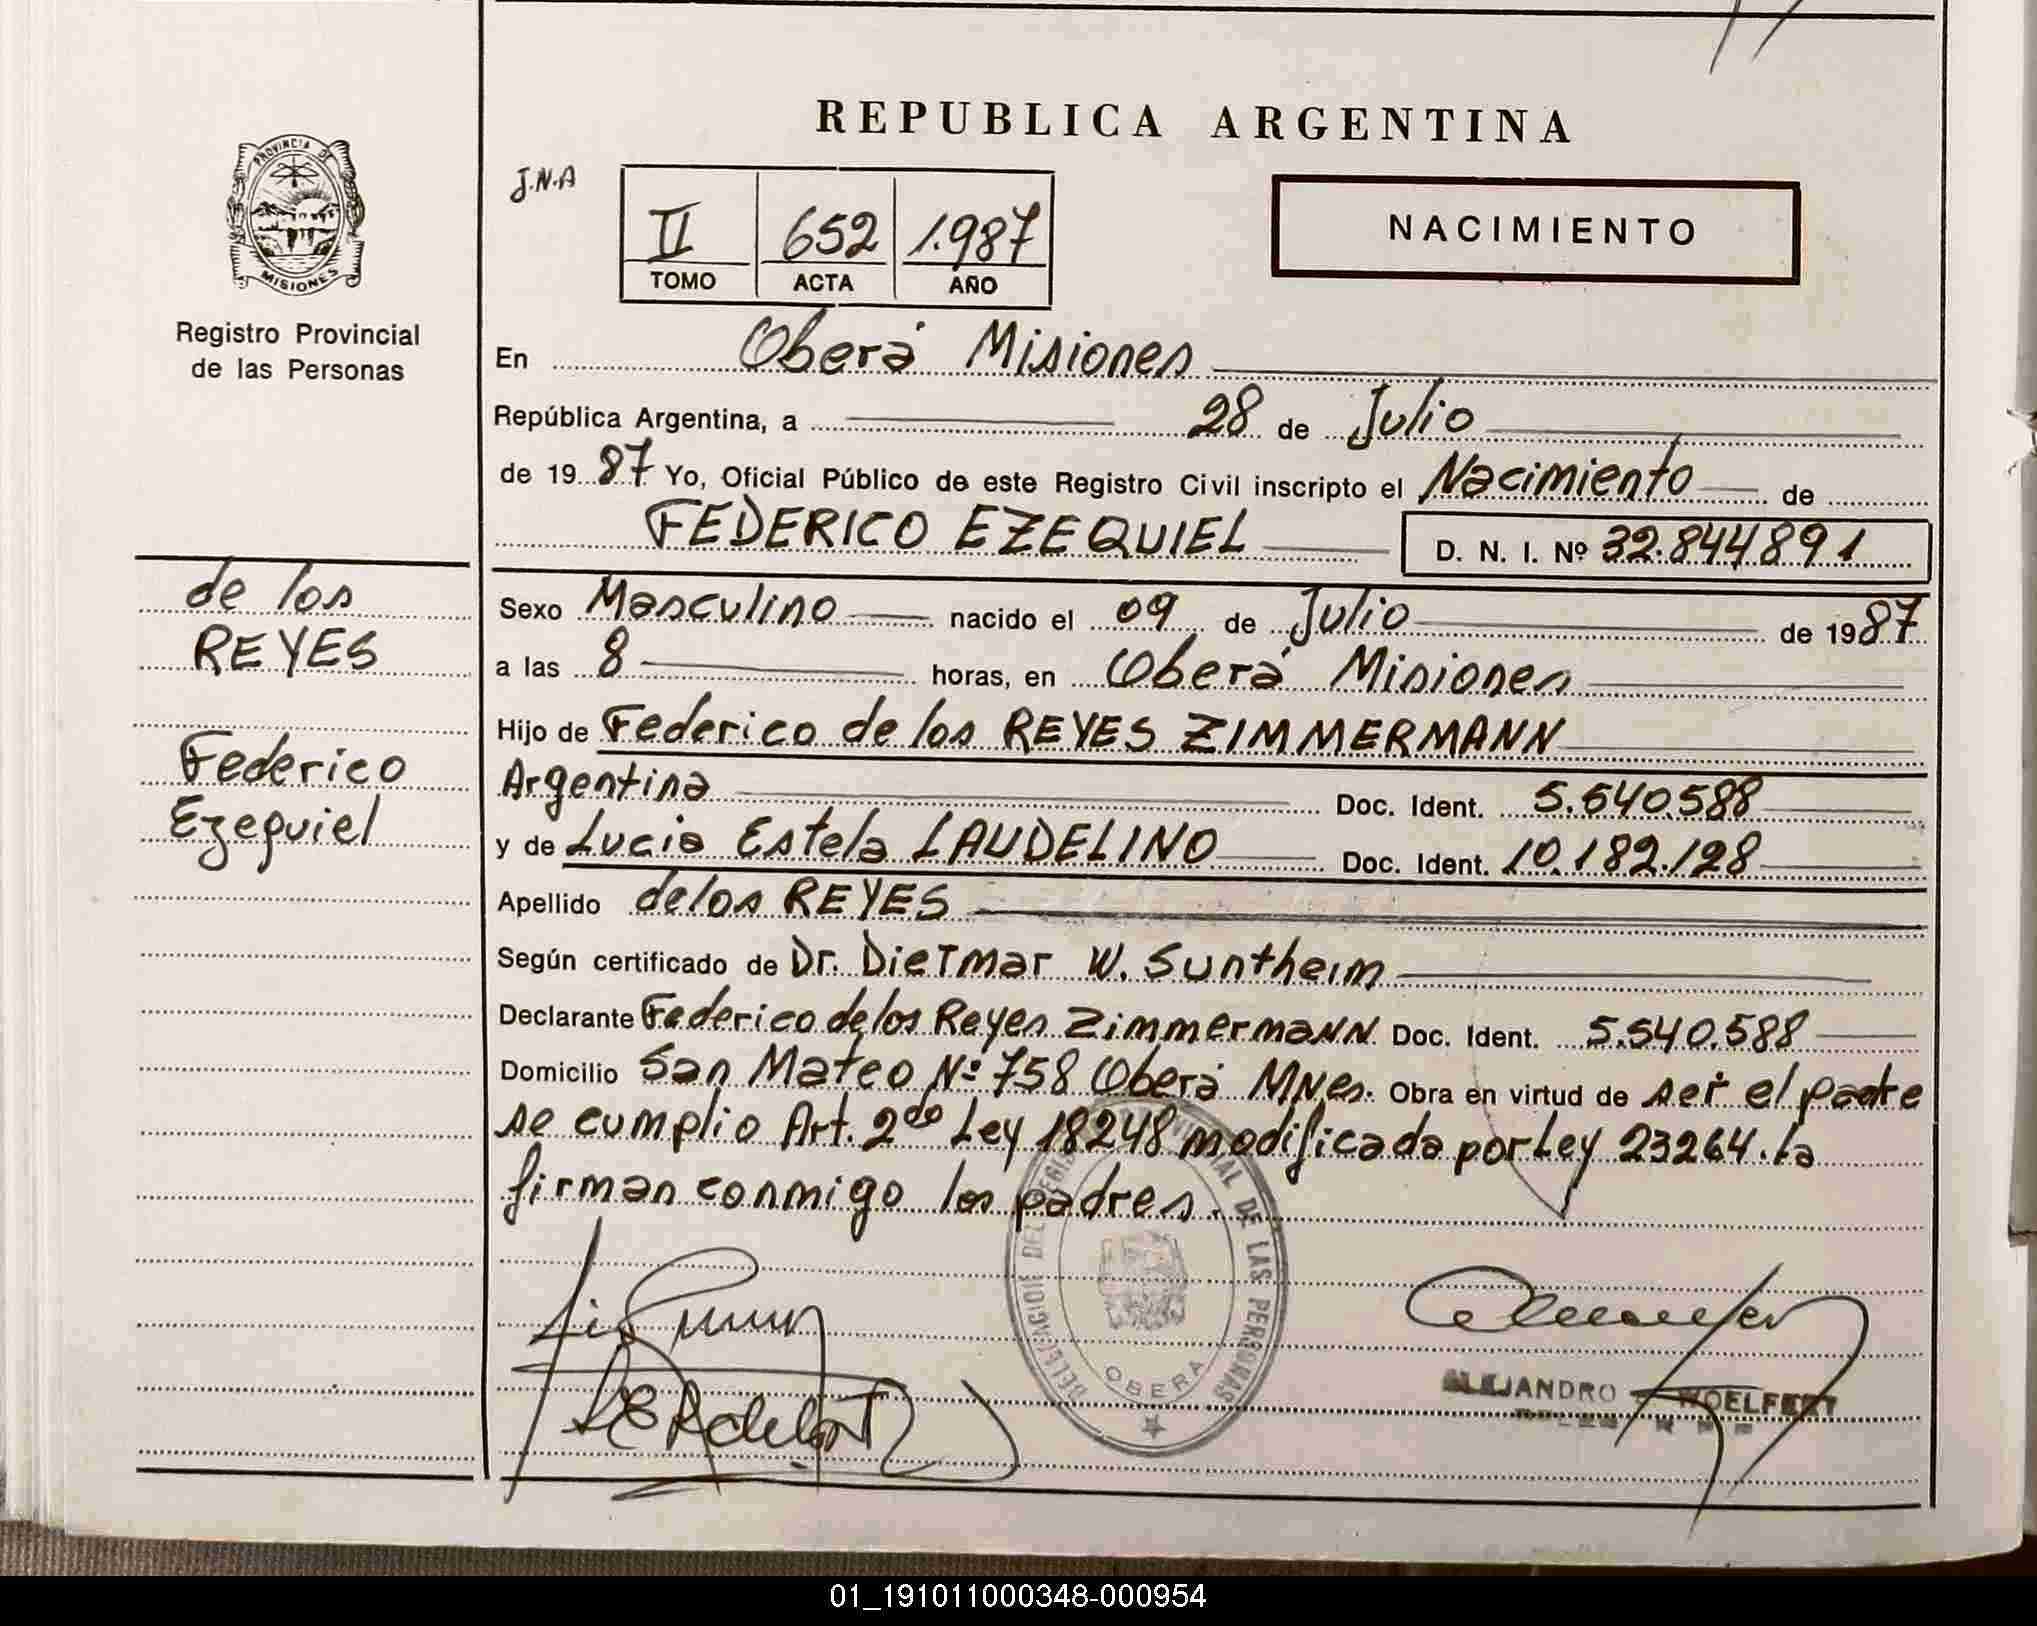 REPUBLICA ARGENTINA
PROVINCIA DE
MISIONES
Registro Provincial
de las Personas
J.N.A
II 652 1.987
TOMO ACTA AÑO
NACIMIENTO
En Oberá Misiones
República Argentina, a 28 de Julio
de 1987 Yo, Oficial Público de este Registro Civil inscripto el Nacimiento de
FEDERICO EZEQUIEL D. N. I. Nº 32.844.891
de los
REYES
Federico
Ezequiel
Sexo Masculino nacido el 09 de Julio de 1987
a las 8 horas, en Oberá Misiones
Hijo de Federico de los REYES ZIMMERMANN
Argentina Doc. Ident. 5.540.588
y de Lucia Estela LAUDELINO Doc. Ident. 10.182.128
Apellido de los REYES
Según certificado de Dr. Dietmar W. Suntheim
Declarante Federico de los Reyes Zimmermann Doc. Ident. 5.540.588
Domicilio San Mateo Nº 758 Oberá MNes. Obra en virtud de ser el padre
se cumplio Art. 2do Ley 18248 modificada por Ley 23264. La
firman conmigo los padres.
DE LAS PERSONAS
OBERA
ALEJANDRO WOELFERT
01_191011000348-000954